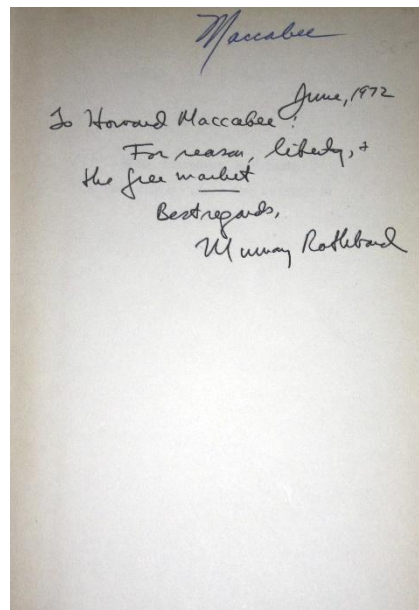 Maccabee
June, 1972
To Howard Maccabee:
For reason, liberty, +
the free market
Best regards,
Murray Rothbard